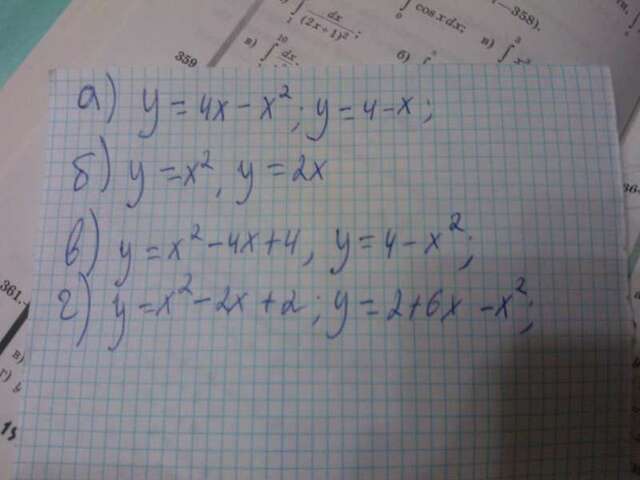 1
dx
(2x+1)²;
0
cos x dx;
—358).
359
в)
10
dx
б)
в)
3
x²
а) y = 4x - x²; y = 4 - x;
б) y = -x², y = 2x
в) y = x² - 4x + 4, y = 4 - x²;
361.
г) y = x² - 2x + 2; y = 2 + 6x - x²;
в)
г)